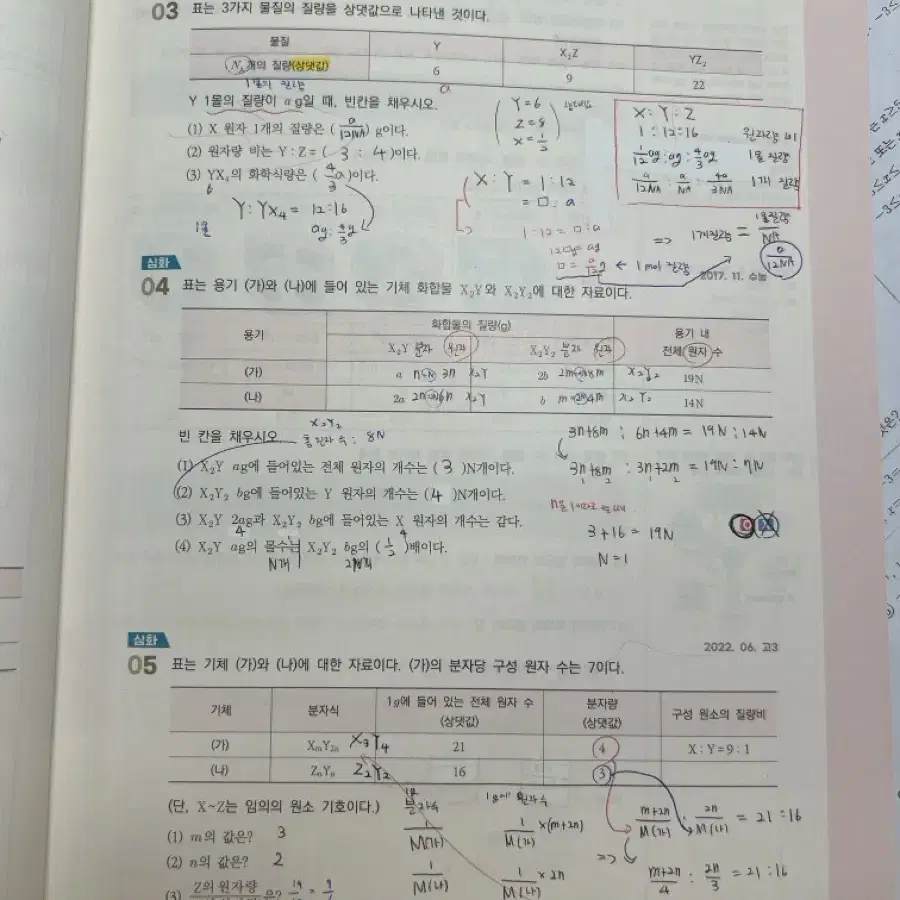 03 표는 3가지 물질의 질량을 상댓값으로 나타낸 것이다.
물질 Y X₂Z YZ₂
N_A개의 질량(상댓값) 6 9 22
1몰의 질량 a
Y 1몰의 질량이 a g일 때, 빈칸을 채우시오.
(1) X 원자 1개의 질량은 ( a/12NA ) g이다.
(2) 원자량 비는 Y : Z = ( 3 : 4 )이다.
(3) YX₄의 화학식량은 ( 4/3 a )이다.
6
Y : YX₄ = 12 : 16
1몰 ag : 4/3 g
Y = 6
Z = 8
X = 1/2
X : Y = 1 : 12
= □ : a
1 : 12 = □ : a
12□ = a
□ = a/12 g ← 1mol 질량
X : Y : Z
1 : 12 : 16 원자량 비
1/12 ag : ag : 4/3 ag 1몰 질량
a/12NA : a/NA : 4a/3NA 1개 질량
=> 1개 질량 = 1몰질량/NA
a/12NA
2017. 11. 수능
심화
04 표는 용기 (가)와 (나)에 들어 있는 기체 화합물 X₂Y와 X₂Y₂에 대한 자료이다.
용기 화합물의 질량(g) 용기 내 전체 원자 수
X₂Y 분자 원자 X₂Y₂ 분자 원자
(가) a n 3n X₂Y 2b 2m 8m X₂Y₂ 19N
(나) 2a 2n 6n X₂Y b m 4m X₂Y₂ 14N
빈 칸을 채우시오.
X₂Y₂
총 원자 수 : 8N
(1) X₂Y ag에 들어있는 전체 원자의 개수는 ( 3 )N개이다.
(2) X₂Y₂ bg에 들어있는 Y 원자의 개수는 ( 4 )N개이다.
(3) X₂Y 2ag과 X₂Y₂ bg에 들어있는 X 원자의 개수는 같다.
4 4
(4) X₂Y ag의 몰수는 X₂Y₂ bg의 ( 1/2 )배이다.
N개 2N개
3n+8m : 6n+4m = 19N : 14N
3n+8m : 3n+2m = 19N : 7N
3+16 = 19N
N = 1
심화
2022. 06. 고3
05 표는 기체 (가)와 (나)에 대한 자료이다. (가)의 분자당 구성 원자 수는 7이다.
기체 분자식 1g에 들어 있는 전체 원자 수 (상댓값) 분자량 (상댓값) 구성 원소의 질량비
(가) XmY2n X₃Y₄ 21 4 X : Y = 9 : 1
(나) ZnYn Z₂Y₂ 16 3
(단, X~Z는 임의의 원소 기호이다.)
(1) m의 값은? 3
(2) n의 값은? 2
(3) Z의 원자량
1g 분자수 1g에 원자수
1/M(가) 1/M(가) ×(m+2n)
1/M(나) 1/M(나) ×2n
m+2n/M(가) : 2n/M(나) = 21 : 16
=> m+2n/4 : 2n/3 = 21 : 16